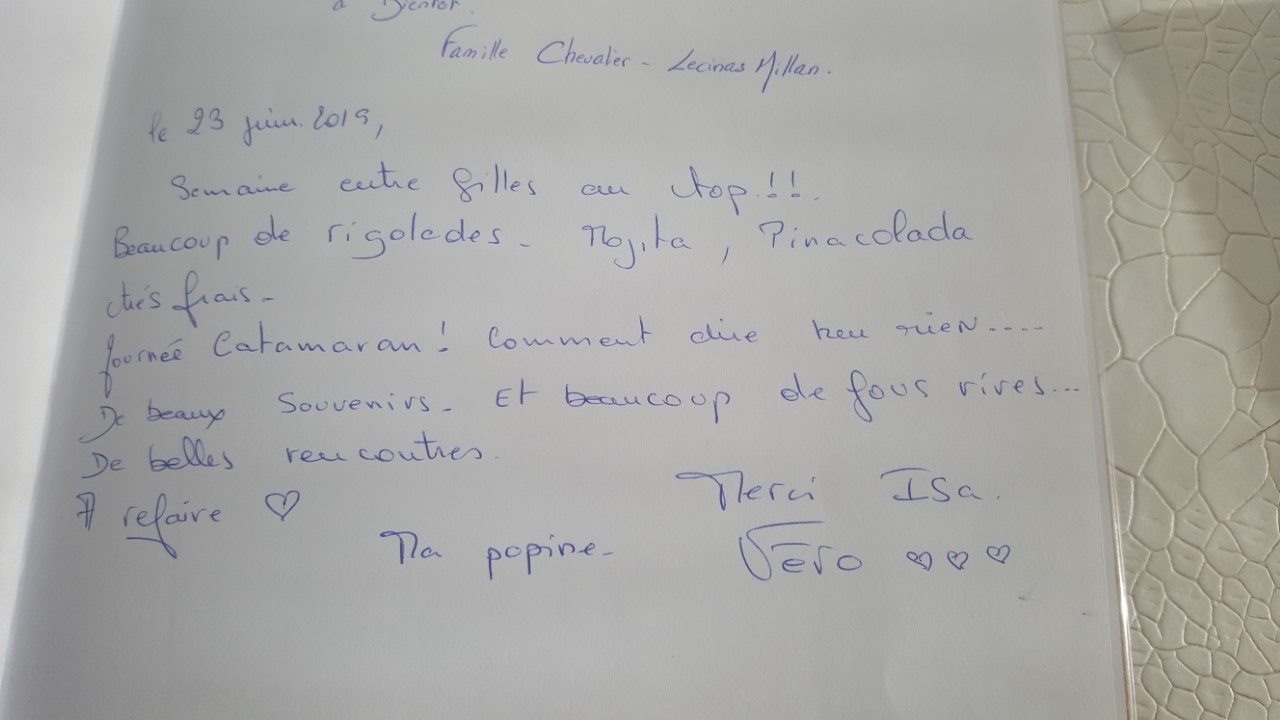 à Bientot.
Famille Chevalier - Lecinas Millan.
le 23 juin 2019,
Semaine entre filles au top!!.
Beaucoup de rigolades - Mojito, Pinacolada
très frais -
Journée Catamaran! Comment dire heu rien....
De beaux souvenirs - Et beaucoup de fous rires...
De belles rencontres.
Merci Isa.
A refaire ♡
Ma popine -
Véro ♡ ♡ ♡